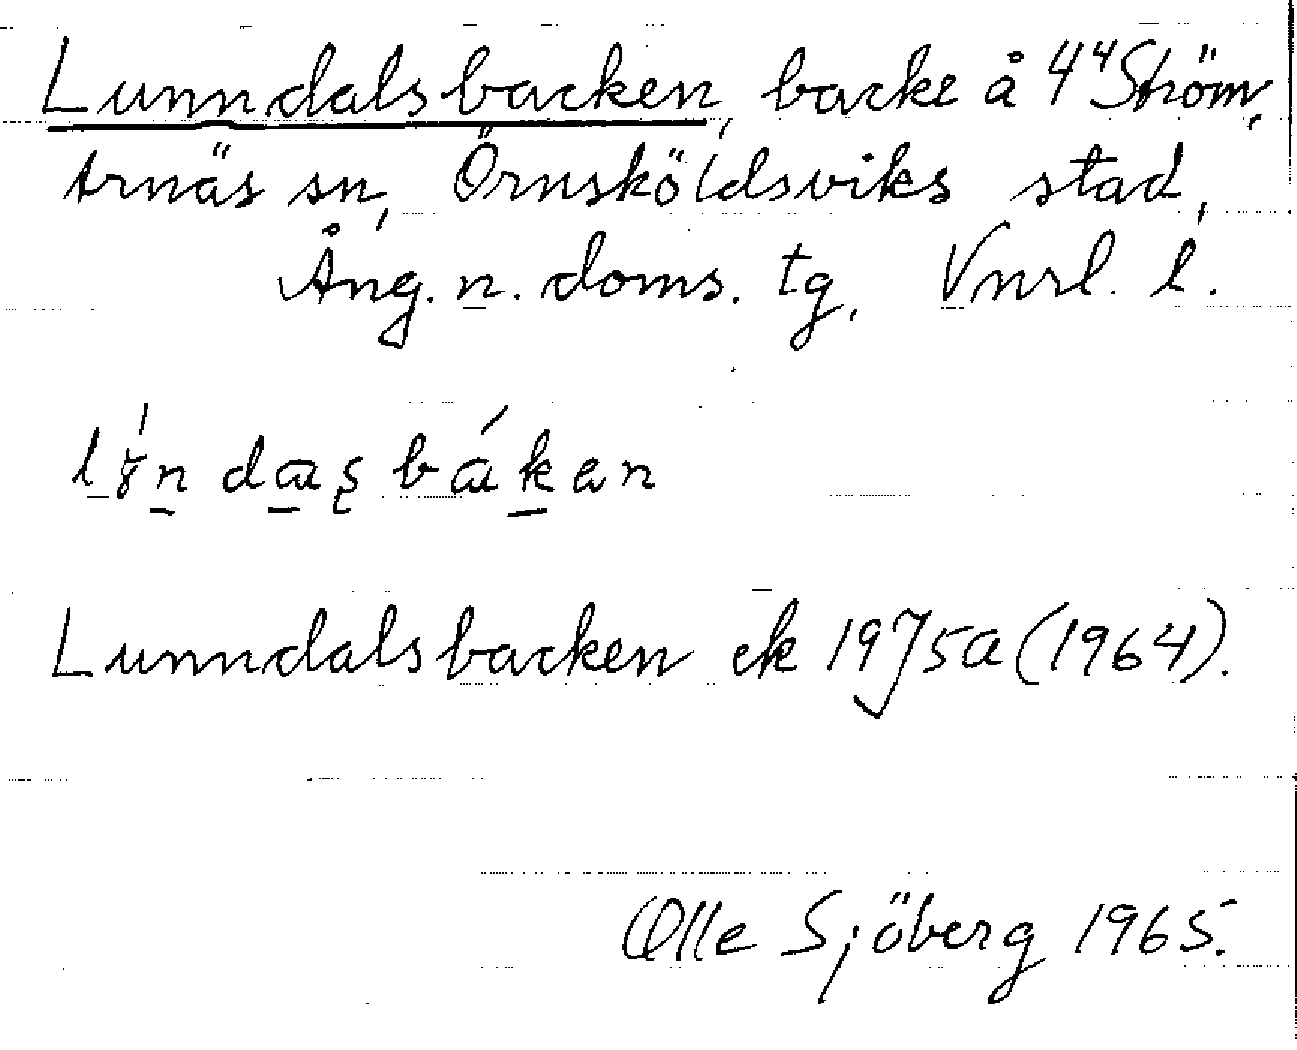 Lunndalsbacken, backe å 4⁴ Ström,
trnäs sn, Örnsköldsviks stad,
Ång. n. doms. tg, Vnrl. l.
Lunndalsbacken ek 19J5a (1964).
Olle Sjöberg 1965.